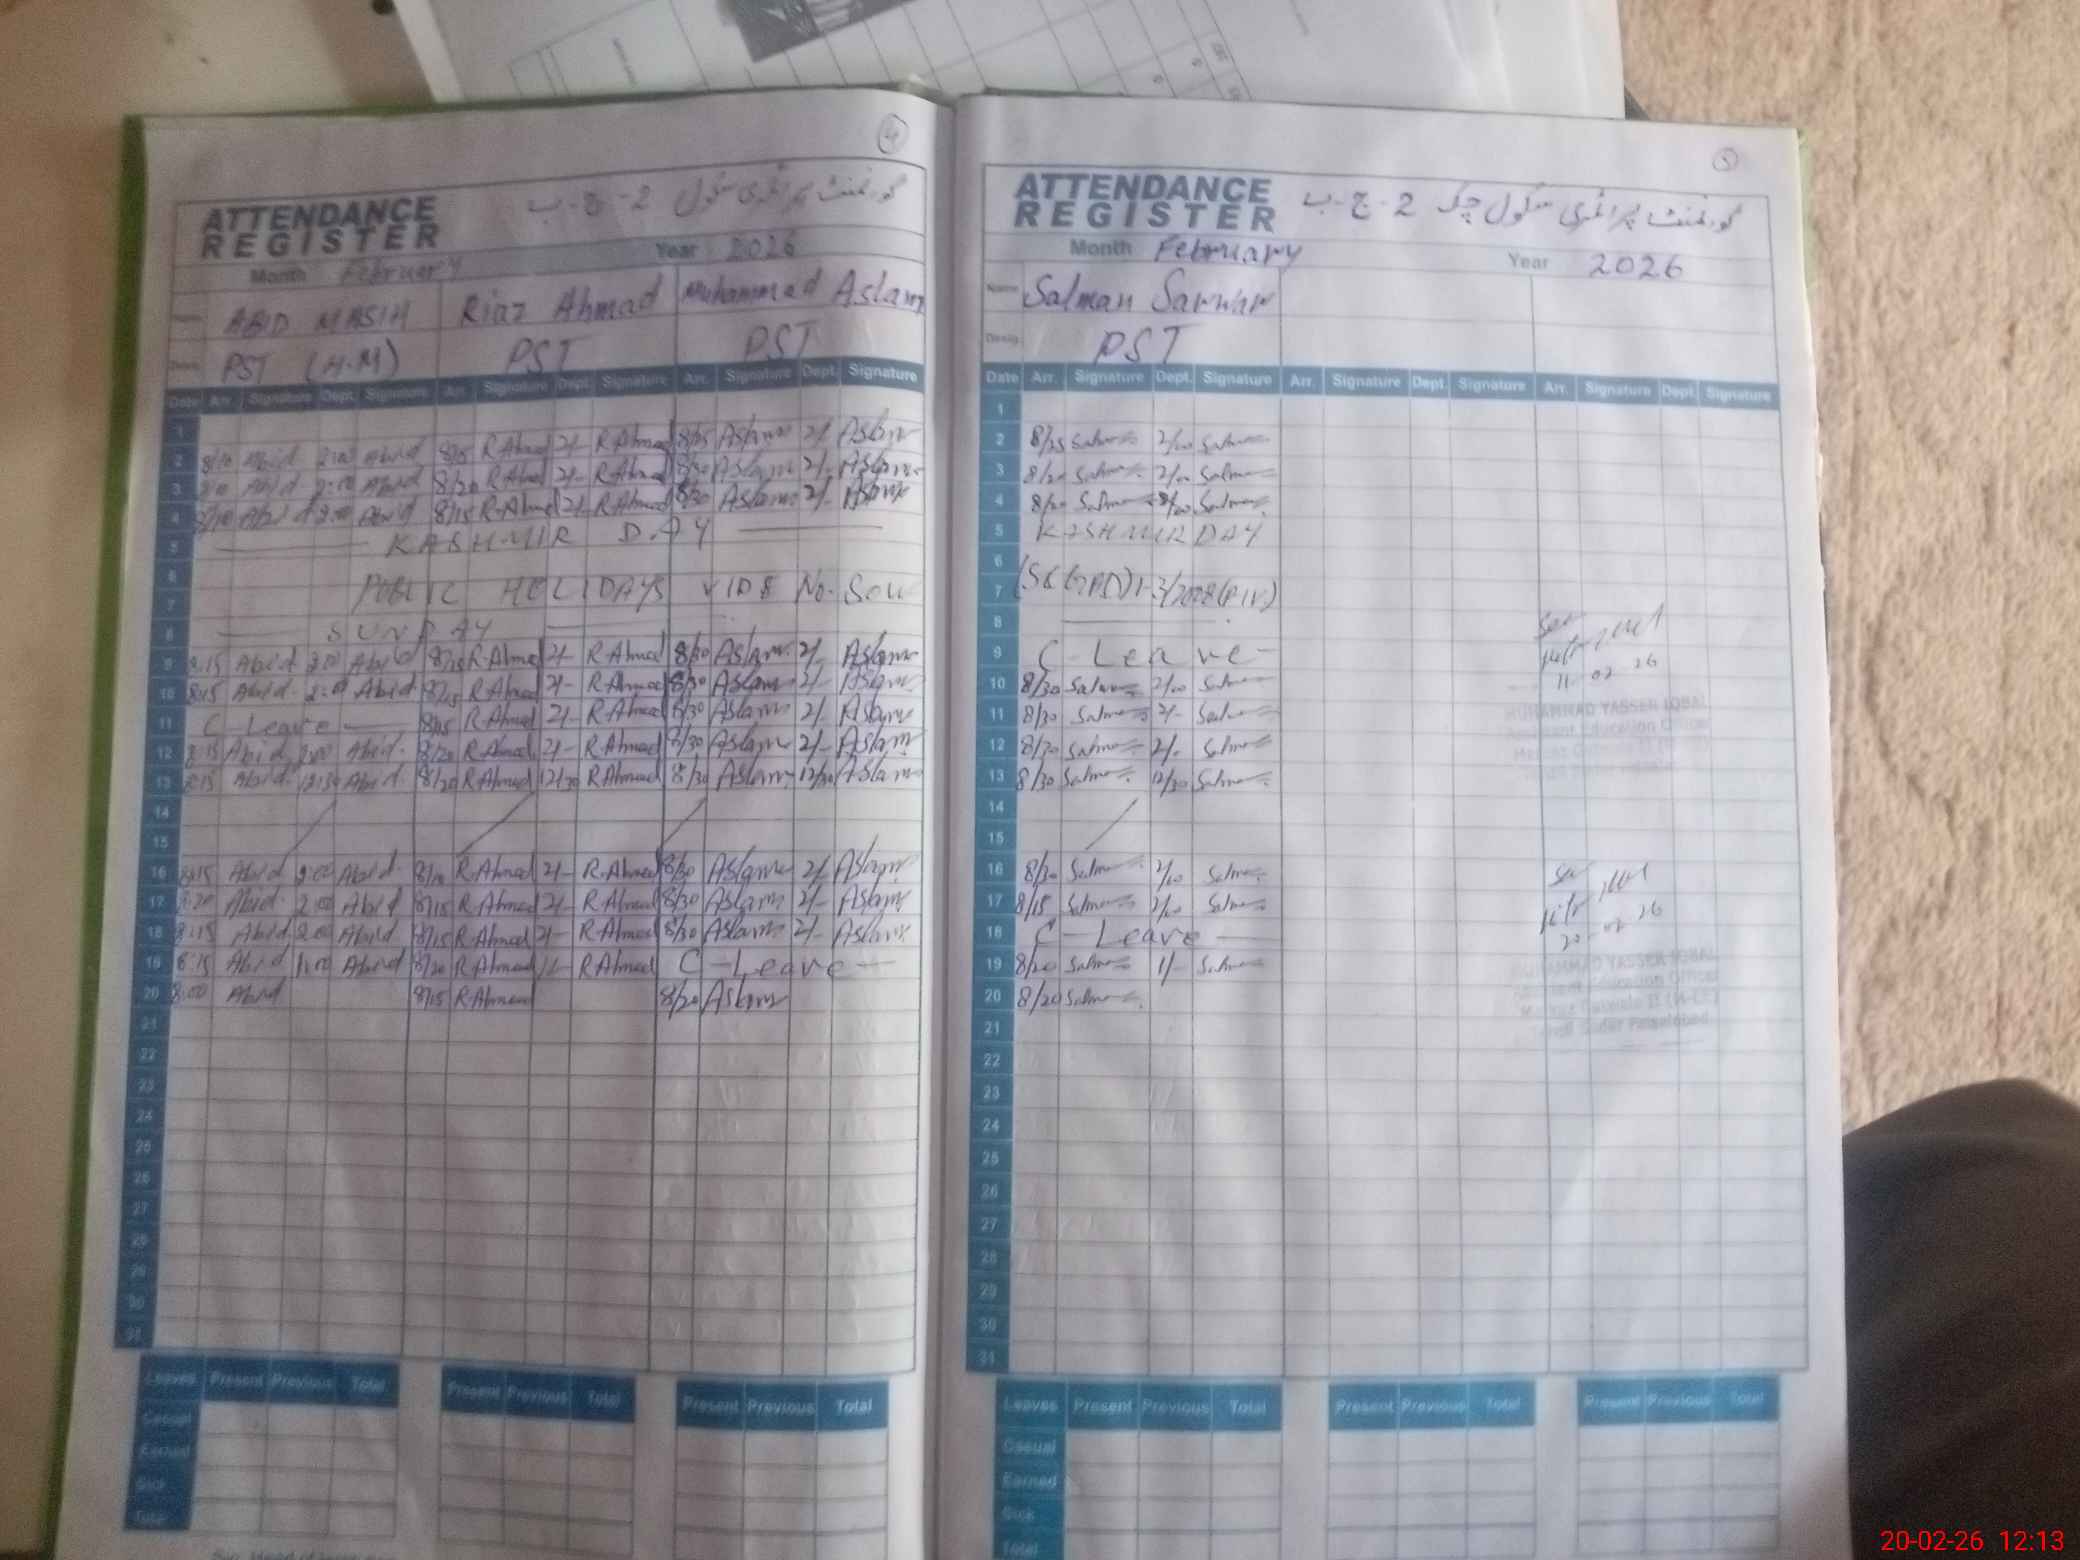 4
ATTENDANCE
REGISTER
گورنمنٹ پرائمری سکول 2-ج-ب
Month February Year 2026
ABID MASIH Riaz Ahmad Muhammad Aslam
PST (H.M) PST PST
Date Arr. Signature Dept. Signature Arr. Signature Dept. Signature Arr. Signature Dept. Signature
1
2 8/10 Abid 2:00 Abid 8/15 R.Ahmad 2/- R.Ahmad 8/25 Aslam 2/- Aslam
3 Abid 2:00 Abid 8/20 R.Ahmad 2/- R.Ahmad 8/30 Aslam 2/- Aslam
4 8/10 Abid 2:00 Abid 8/15 R.Ahmad 2/- R.Ahmad 8/30 Aslam 2/- Aslam
5 KASHMIR DAY
6
7 PUBLIC HOLIDAYS VIDE No. SOW
8 SUNDAY
9 8:15 Abid 2:00 Abid 8/15 R.Ahmad 2/- R.Ahmad 8/30 Aslam 2/- Aslam
10 8:15 Abid 2:00 Abid 8/15 R.Ahmad 2/- R.Ahmad 8/30 Aslam 2/- Aslam
11 C-Leave 8/15 R.Ahmad 2/- R.Ahmad 8/30 Aslam 2/- Aslam
12 8:15 Abid 2:00 Abid 8/20 R.Ahmad 2/- R.Ahmad 8/30 Aslam 2/- Aslam
13 8:15 Abid 12:30 Abid 8/20 R.Ahmad 12/30 R.Ahmad 8/30 Aslam 12/30 Aslam
14
15
16 8:15 Abid 2:00 Abid R.Ahmad 2/- R.Ahmad 8/30 Aslam 2/- Aslam
17 8:20 Abid 2:00 Abid 8/15 R.Ahmad 2/- R.Ahmad 8/30 Aslam 2/- Aslam
18 8:15 Abid 2:00 Abid 8/15 R.Ahmad 2/- R.Ahmad 8/30 Aslam 2/- Aslam
19 8:15 Abid 1:00 Abid 8/20 R.Ahmad 1/- R.Ahmad C-Leave
20 8:00 Abid 8/15 R.Ahmad 8/20 Aslam
21
22
23
24
25
26
27
28
29
30
31
Leaves Present Previous Total Present Previous Total Present Previous Total
Casual
Earned
Sick
Total
5
ATTENDANCE
REGISTER
گورنمنٹ پرائمری سکول چک 2-ج-ب
Month February Year 2026
Name Salman Sarwar
Desig. PST
Date Arr. Signature Dept. Signature Arr. Signature Dept. Signature Arr. Signature Dept. Signature
1
2 8/25 Salman 2/00 Salman
3 8/20 Salman 2/00 Salman
4 8/20 Salman 2/00 Salman
5 KASHMIR DAY
6
7
8
9 C-Leave
10 8/30 Salman 2/00 Salman
11 8/30 Salman 2/- Salman
12 8/30 Salman 2/- Salman
13 8/30 Salman 12/30 Salman
14
15
16 8/30 Salman 2/00 Salman
17 8/15 Salman 2/00 Salman
18 C-Leave
19 8/20 Salman 1/- Salman
20 8/20 Salman
21
22
23
24
25
26
27
28
29
30
31
11-02-26
MUHAMMAD YASSER IQBAL
Assistant Education Officer
20-02-26
MUHAMMAD YASSER IQBAL
Assistant Education Officer
Sadar Faisalabad
Leaves Present Previous Total Present Previous Total Present Previous Total
Casual
Earned
Sick
Total
20-02-26 12:13